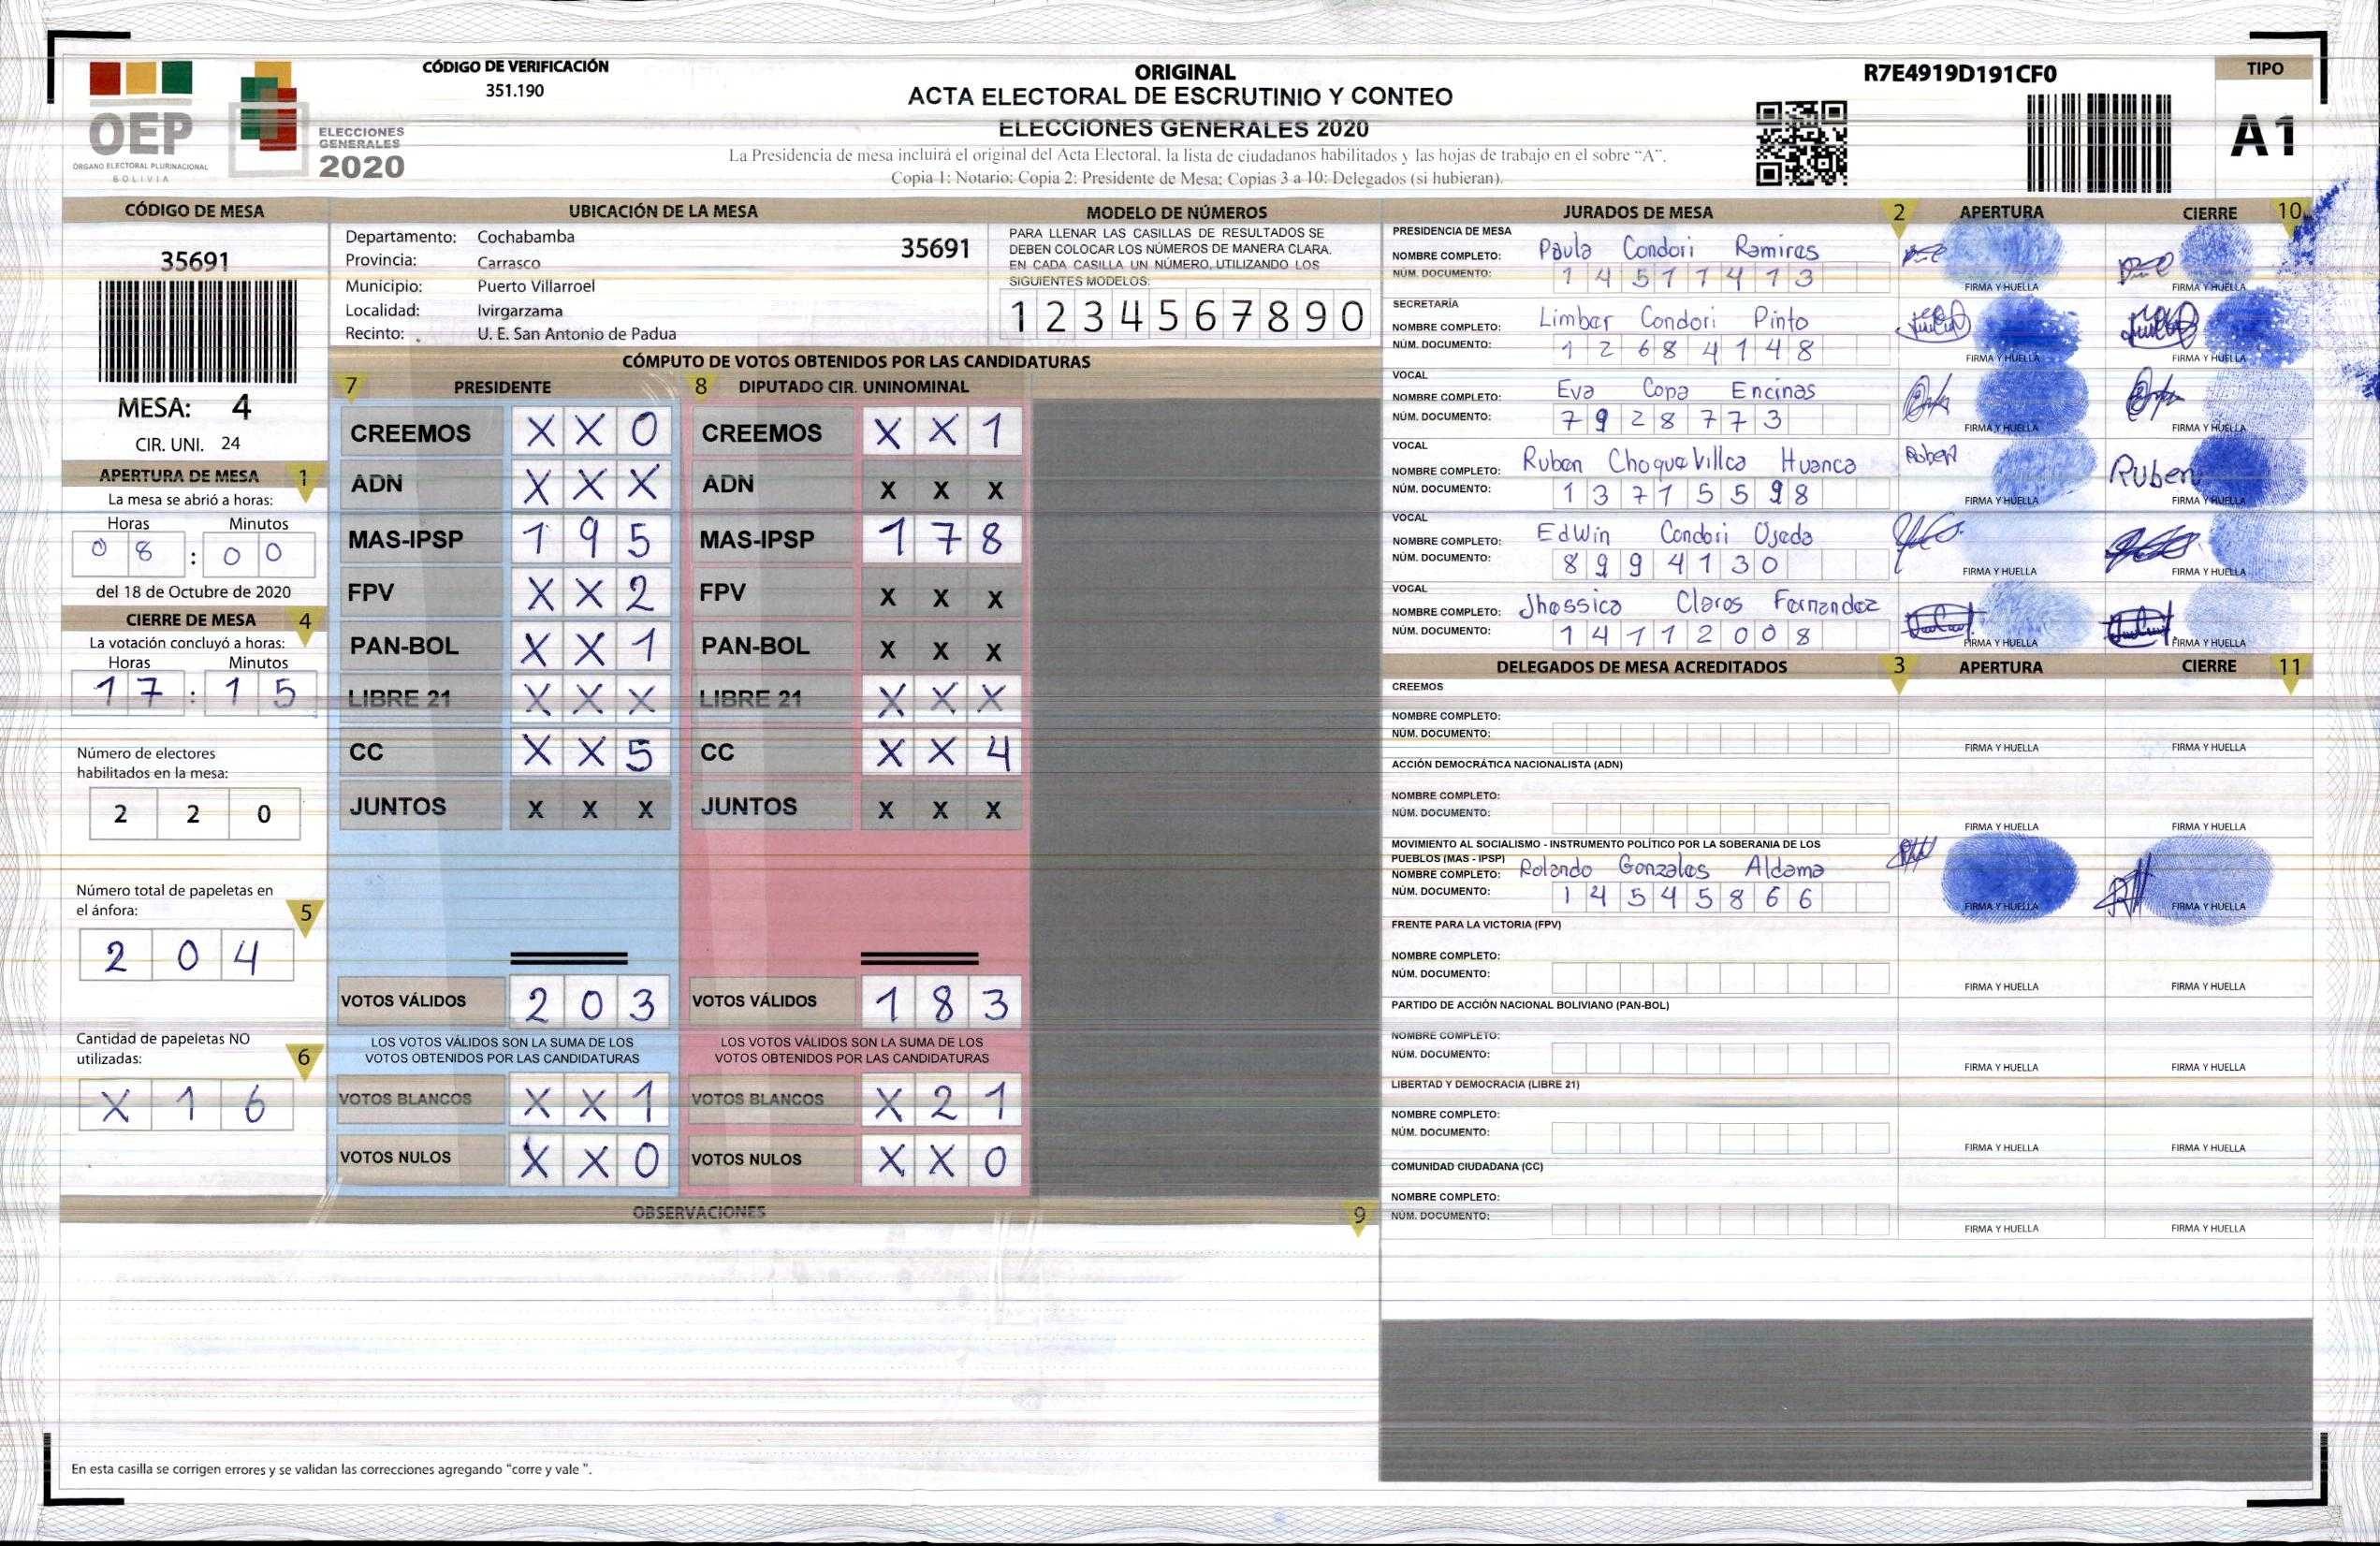 OEP
ÓRGANO ELECTORAL PLURINACIONAL
BOLIVIA
ELECCIONES
GENERALES
2020
CÓDIGO DE VERIFICACIÓN
351.190
ORIGINAL
ACTA ELECTORAL DE ESCRUTINIO Y CONTEO
ELECCIONES GENERALES 2020
La Presidencia de mesa incluirá el original del Acta Electoral, la lista de ciudadanos habilitados y las hojas de trabajo en el sobre "A".
Copia 1: Notario; Copia 2: Presidente de Mesa; Copias 3 a 10: Delegados (si hubieran).
R7E4919D191CF0
TIPO
A1
CÓDIGO DE MESA
35691
MESA: 4
CIR. UNI. 24
APERTURA DE MESA 1
La mesa se abrió a horas:
Horas Minutos
0 8 : 0 0
del 18 de Octubre de 2020
CIERRE DE MESA 4
La votación concluyó a horas:
Horas Minutos
1 7 : 1 5
Número de electores
habilitados en la mesa:
2 2 0
Número total de papeletas en
el ánfora: 5
2 0 4
Cantidad de papeletas NO
utilizadas: 6
X 1 6
UBICACIÓN DE LA MESA
Departamento: Cochabamba 35691
Provincia: Carrasco
Municipio: Puerto Villarroel
Localidad: Ivirgarzama
Recinto: U. E. San Antonio de Padua
MODELO DE NÚMEROS
PARA LLENAR LAS CASILLAS DE RESULTADOS SE
DEBEN COLOCAR LOS NÚMEROS DE MANERA CLARA.
EN CADA CASILLA UN NÚMERO, UTILIZANDO LOS
SIGUIENTES MODELOS:
1 2 3 4 5 6 7 8 9 0
CÓMPUTO DE VOTOS OBTENIDOS POR LAS CANDIDATURAS
7 PRESIDENTE 8 DIPUTADO CIR. UNINOMINAL
CREEMOS X X 0 CREEMOS X X 1
ADN X X X ADN X X X
MAS-IPSP 1 9 5 MAS-IPSP 1 7 8
FPV X X 2 FPV X X X
PAN-BOL X X 1 PAN-BOL X X X
LIBRE 21 X X X LIBRE 21 X X X
CC X X 5 CC X X 4
JUNTOS X X X JUNTOS X X X
VOTOS VÁLIDOS 2 0 3 VOTOS VÁLIDOS 1 8 3
LOS VOTOS VÁLIDOS SON LA SUMA DE LOS LOS VOTOS VÁLIDOS SON LA SUMA DE LOS
VOTOS OBTENIDOS POR LAS CANDIDATURAS VOTOS OBTENIDOS POR LAS CANDIDATURAS
VOTOS BLANCOS X X 1 VOTOS BLANCOS X 2 1
VOTOS NULOS X X 0 VOTOS NULOS X X 0
OBSERVACIONES 9
En esta casilla se corrigen errores y se validan las correcciones agregando "corre y vale ".
JURADOS DE MESA 2 APERTURA CIERRE 10
PRESIDENCIA DE MESA
NOMBRE COMPLETO: Paula Condori Ramires
NÚM. DOCUMENTO: 1 4 5 7 7 4 7 3
FIRMA Y HUELLA FIRMA Y HUELLA
SECRETARÍA
NOMBRE COMPLETO: Limber Condori Pinto
NÚM. DOCUMENTO: 1 2 6 8 4 1 4 8
FIRMA Y HUELLA FIRMA Y HUELLA
VOCAL
NOMBRE COMPLETO: Eva Copa Encinas
NÚM. DOCUMENTO: 7 9 2 8 7 7 3
FIRMA Y HUELLA FIRMA Y HUELLA
VOCAL
NOMBRE COMPLETO: Ruben Choque Villca Huanca Ruben Ruben
NÚM. DOCUMENTO: 1 3 7 1 5 5 9 8
FIRMA Y HUELLA FIRMA Y HUELLA
VOCAL
NOMBRE COMPLETO: Edwin Condori Ojeda
NÚM. DOCUMENTO: 8 9 9 4 1 3 0
FIRMA Y HUELLA FIRMA Y HUELLA
VOCAL
NOMBRE COMPLETO: Jhessica Claros Fernandez
NÚM. DOCUMENTO: 1 4 1 1 2 0 0 8
FIRMA Y HUELLA FIRMA Y HUELLA
DELEGADOS DE MESA ACREDITADOS 3 APERTURA CIERRE 11
CREEMOS
NOMBRE COMPLETO:
NÚM. DOCUMENTO:
FIRMA Y HUELLA FIRMA Y HUELLA
ACCIÓN DEMOCRÁTICA NACIONALISTA (ADN)
NOMBRE COMPLETO:
NÚM. DOCUMENTO:
FIRMA Y HUELLA FIRMA Y HUELLA
MOVIMIENTO AL SOCIALISMO - INSTRUMENTO POLÍTICO POR LA SOBERANIA DE LOS
PUEBLOS (MAS - IPSP)
NOMBRE COMPLETO: Rolando Gonzales Aldama
NÚM. DOCUMENTO: 1 4 5 4 5 8 6 6
FIRMA Y HUELLA FIRMA Y HUELLA
FRENTE PARA LA VICTORIA (FPV)
NOMBRE COMPLETO:
NÚM. DOCUMENTO:
FIRMA Y HUELLA FIRMA Y HUELLA
PARTIDO DE ACCIÓN NACIONAL BOLIVIANO (PAN-BOL)
NOMBRE COMPLETO:
NÚM. DOCUMENTO:
FIRMA Y HUELLA FIRMA Y HUELLA
LIBERTAD Y DEMOCRACIA (LIBRE 21)
NOMBRE COMPLETO:
NÚM. DOCUMENTO:
FIRMA Y HUELLA FIRMA Y HUELLA
COMUNIDAD CIUDADANA (CC)
NOMBRE COMPLETO:
NÚM. DOCUMENTO:
FIRMA Y HUELLA FIRMA Y HUELLA